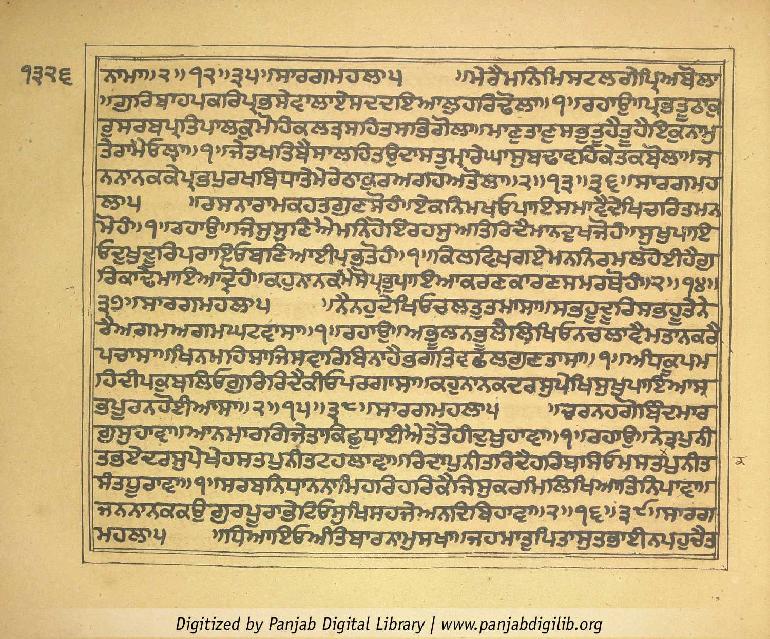 ੧੩੨੬
ਨਾਮਾ॥੨॥੧੨॥੩੫॥ਸਾਰਗਮਹਲਾ੫ ॥ਮੇਰੈਮਾਨਿਮਿਸਟਲਗੇਪ੍ਰਿਅਬੋਲਾ
॥ਗੁਰਿਬਾਹਪਕਰਿਪ੍ਰਭਸੇਵਾਲਾਏਸਦਦਾਇਆਲੁਹਰਿਢੋਲਾ॥੧॥ਰਹਾਉ॥ਪ੍ਰਭਤੂਠਾਕੁ
ਰੁਸਰਬਪ੍ਰਤਿਪਾਲਕੁਮੋਹਿਕਲਤ੍ਰਸਹਿਤਸਭਿਗੋਲਾ॥ਮਾਣੁਤਾਣੁਸਭੁਤੂਹੈਤੂਹੈਇਕੁਨਾਮੁ
ਤੇਰਾਮੈਓਲ੍ਹਾ॥੧॥ਜੇਤਖਤਿਬੈਸਾਲਹਿਤਉਦਾਸਤੁਮ੍ਹਾਰੇਘਾਸੁਬਢਾਵਹਿਕੇਤਕਬੋਲਾ॥ਜ
ਨਨਾਨਕਕੇਪ੍ਰਭਪੁਰਖਬਿਧਾਤੇਮੇਰੇਠਾਕੁਰਅਗਹਅਤੋਲਾ॥੨॥੧੩॥੩੬॥ਸਾਰਗਮਹ
ਲਾ੫ ॥ਰਸਨਾਰਾਮਕਹਤਗੁਣਸੋਹੀ॥ਏਕਨਿਮਖਓਪਾਇਸਮਾਵੈਦੇਖਿਚਰਿਤਮਨ
ਮੋਹੀ॥੧॥ਰਹਾਉ॥ਜਿਸੁਸੁਣਿਐਮਨਿਹੋਇਰਹਸੁਅਤਿਰਿਦੈਮਾਨਦੁਖਜੋਹੀ॥ਸੁਖੁਪਾਇ
ਓਦੁਖੁਦੂਰਿਪਰਾਇਓਬਣਿਆਈਪ੍ਰਭਤੋਹੀ॥੧॥ਕਿਲਵਿਖਗਏਮਨਨਿਰਮਲਹੋਈਹੈਗੁ
ਰਿਕਾਢੇਮਾਇਆਦ੍ਰੋਹੀ॥ਕਹੁਨਾਨਕਮੈਸੋਪ੍ਰਭੁਪਾਇਆਕਰਣਕਾਰਣਸਮਰਥੋਹੀ॥੨॥੧੪॥
੩੭॥ਸਾਰਗਮਹਲਾ੫ ॥ਨੈਨਹੁਦੇਖਿਓਚਲਤੁਤਮਾਸਾ॥ਸਭਹੂਦੂਰਿਸਭਹੂਤੇਨੇ
ਰੈਅਗਮਅਗਮਘਟਵਾਸਾ॥੧॥ਰਹਾਉ॥ਅਭੂਲਨਭੂਲੈਲਿਖਿਓਨਚਲਾਵੈਮਤਾਨਕਰੈ
ਪਚਾਸਾ॥ਖਿਨਮਹਿਸਾਜਿਸਵਾਰਿਬਿਨਾਹੈਭਗਤਿਵਛਲਗੁਣਤਾਸਾ॥੧॥ਅੰਧਕੂਪਮ
ਹਿਦੀਪਕੁਬਲਿਓਗੁਰਿਰਿਦੈਕੀਓਪਰਗਾਸਾ॥ਕਹੁਨਾਨਕਦਰਸੁਪੇਖਿਸੁਖੁਪਾਇਆਸ
ਭਪੂਰਨਹੋਈਆਸਾ॥੨॥੧੫॥੩੮॥ਸਾਰਗਮਹਲਾ੫ ॥ਚਰਨਹਗੋਬਿੰਦਮਾਰ
ਗੁਸੁਹਾਵਾ॥ਆਨਮਾਰਗਿਜੇਤਾਕਿਛੁਧਾਈਐਤੇਤੋਹੀਦੁਖੁਹਾਵਾ॥੧॥ਰਹਾਉ॥ਨੇਤ੍ਰਪੁਨੀ
ਤਭਏਦਰਸੁਪੇਖੇਹਸਤਪੁਨੀਤਟਹਲਾਵਾ॥ਰਿਦਾਪੁਨੀਤਰਿਦੈਹਰਿਬਸਿਓਮਸਤਪੁਨੀਤ
ਸੰਤਧੂਰਾਵਾ॥੧॥ਸਰਬਨਿਧਾਨਨਾਮਿਹਰਿਹਰਿਕੈਜਿਸੁਕਰਮਿਲਿਖਿਆਤਿਨਿਪਾਵਾ॥
ਜਨਨਾਨਕਕਉਗੁਰਪੂਰਾਭੇਟਿਓਸੁਖਿਸਹਜੇਅਨਦਬਿਹਾਵਾ॥੨॥੧੬॥੩੯॥ਸਾਰਗ
ਮਹਲਾ੫ ॥ਧਿਆਇਓਅੰਤਿਬਾਰਨਾਮੁਸਖਾ॥ਜਹਮਾਤਪਿਤਾਸੁਤਭਾਈਨਪਹੁਚੈਤ
Digitized by Panjab Digital Library | www.panjabdigilib.org